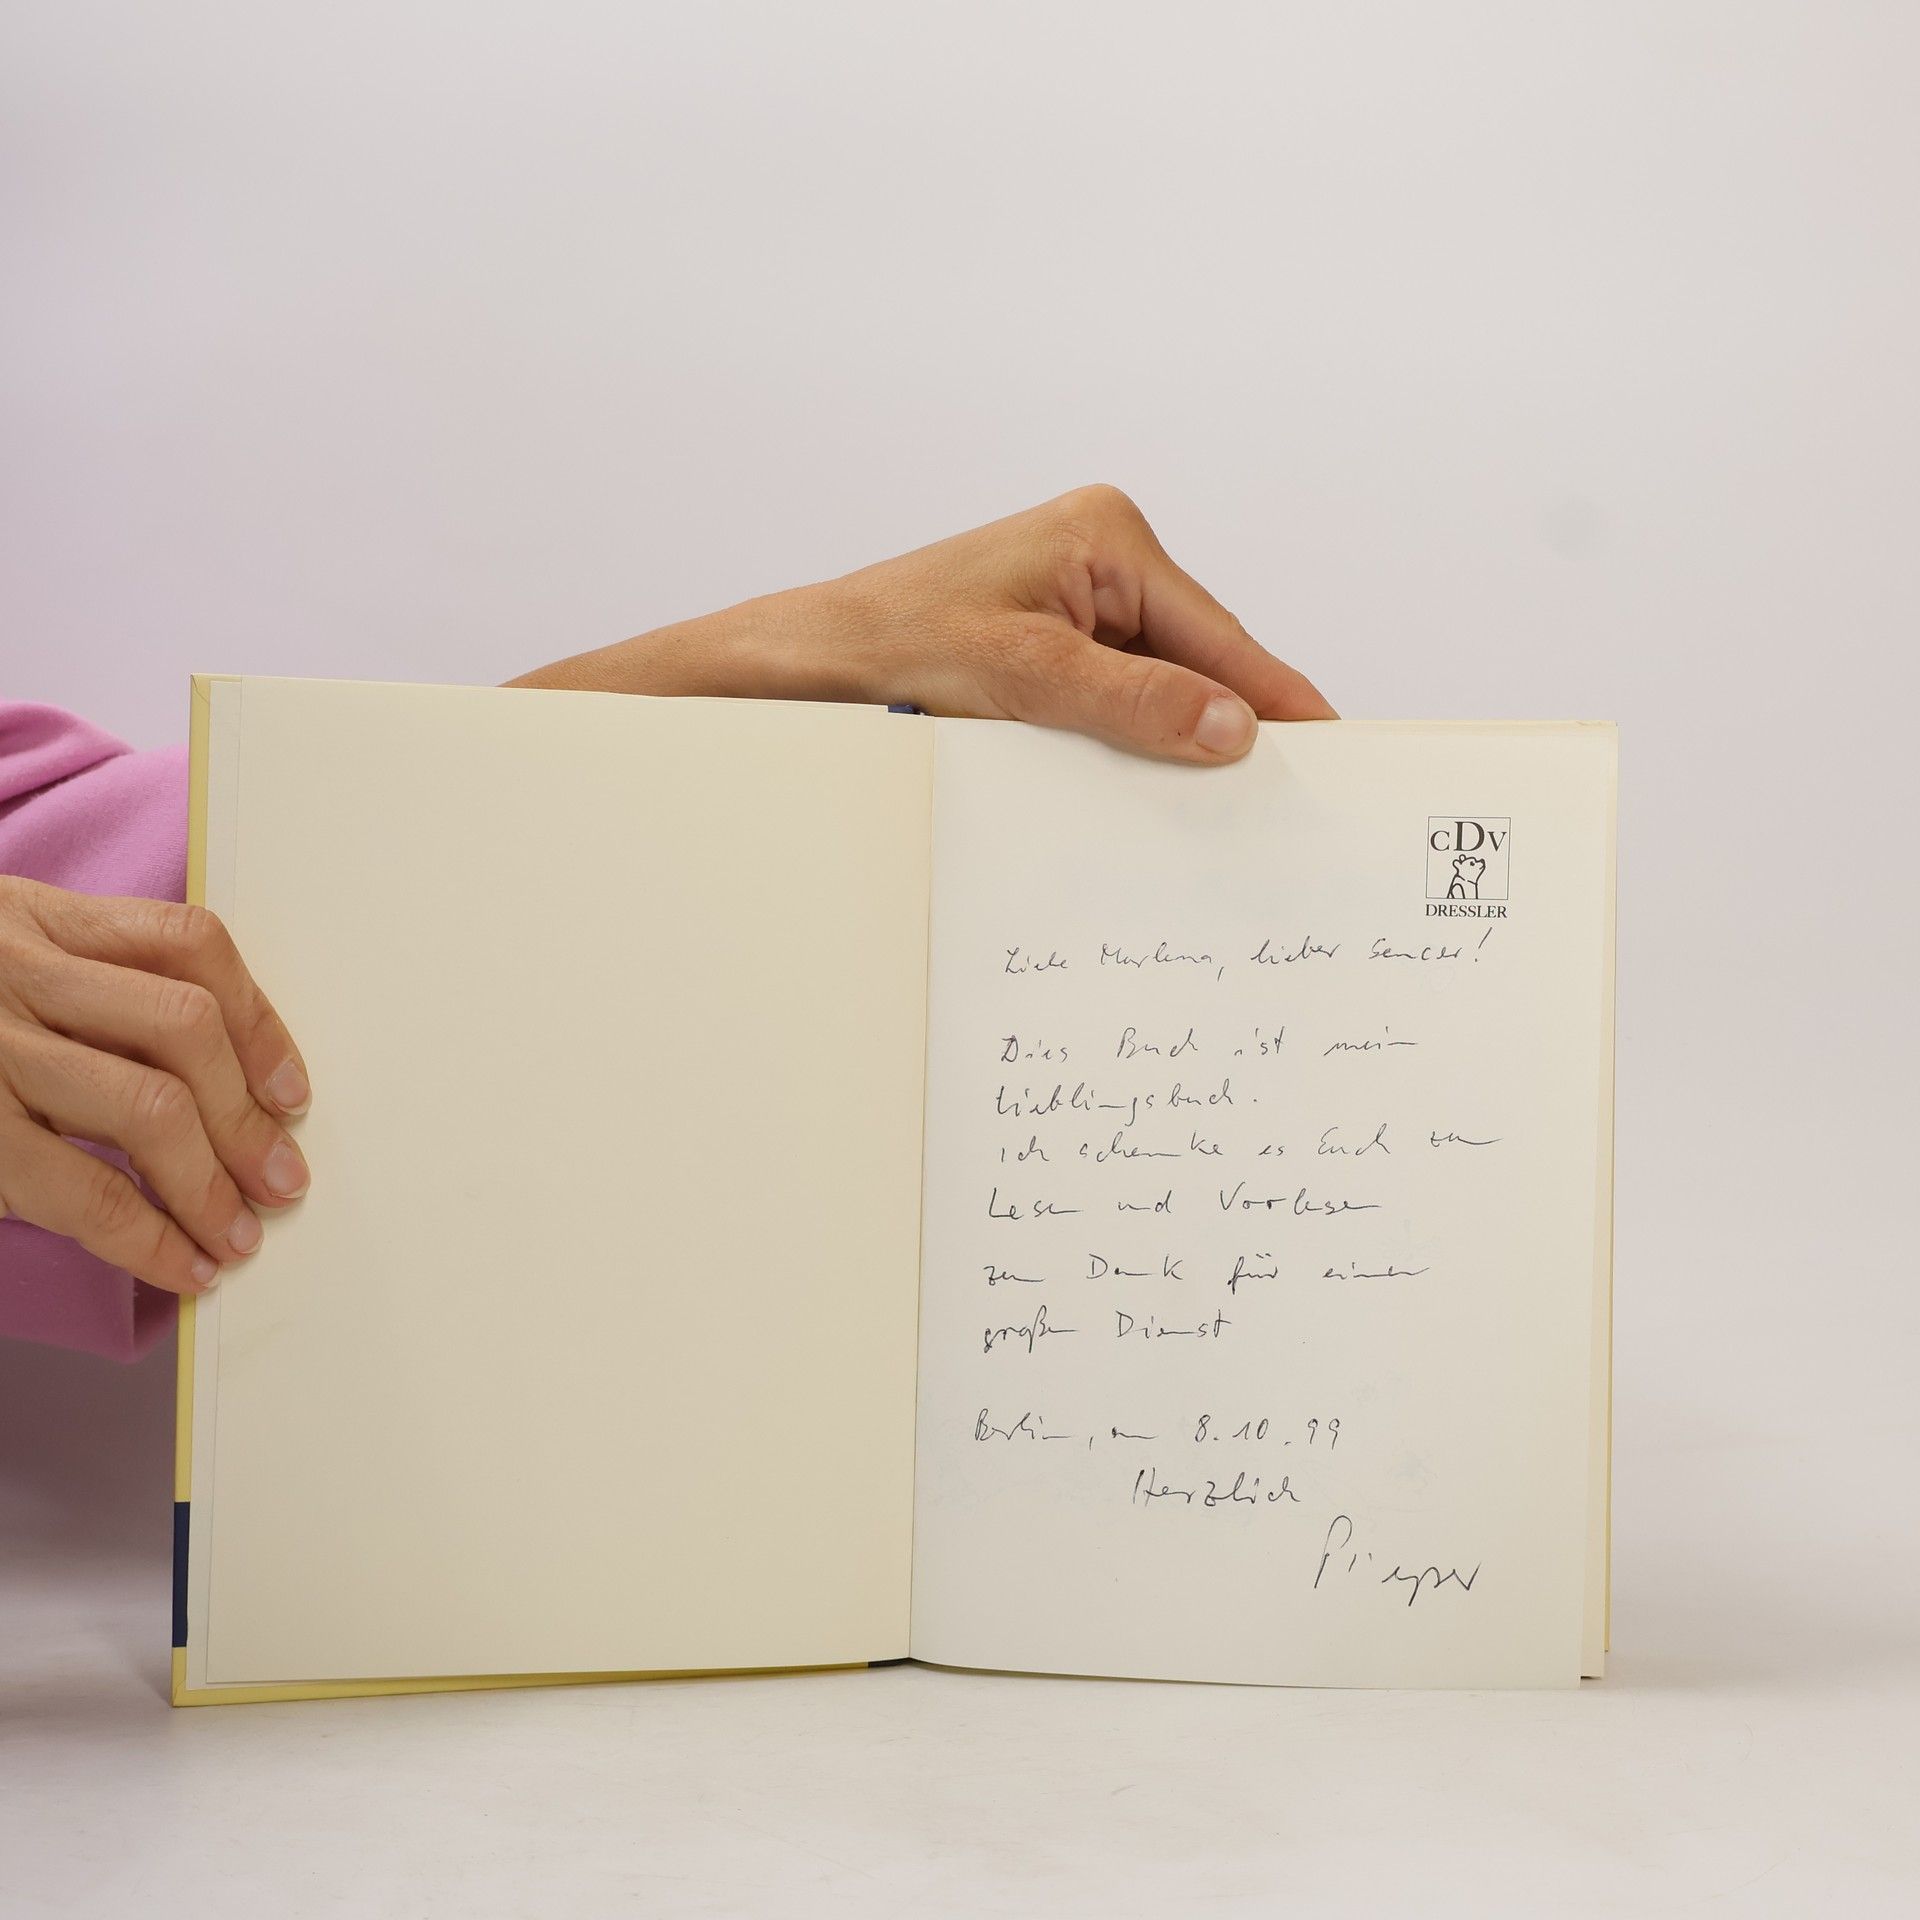 CDV
DRESSLER
Liebe Marlena, lieber Sencer!
Dies Buch ist mein
Lieblingsbuch.
Ich schenke es Euch zum
Lesen und Vorlesen
zum Dank für einen
großen Dienst
Berlin, am 8.10.99
Herzlich